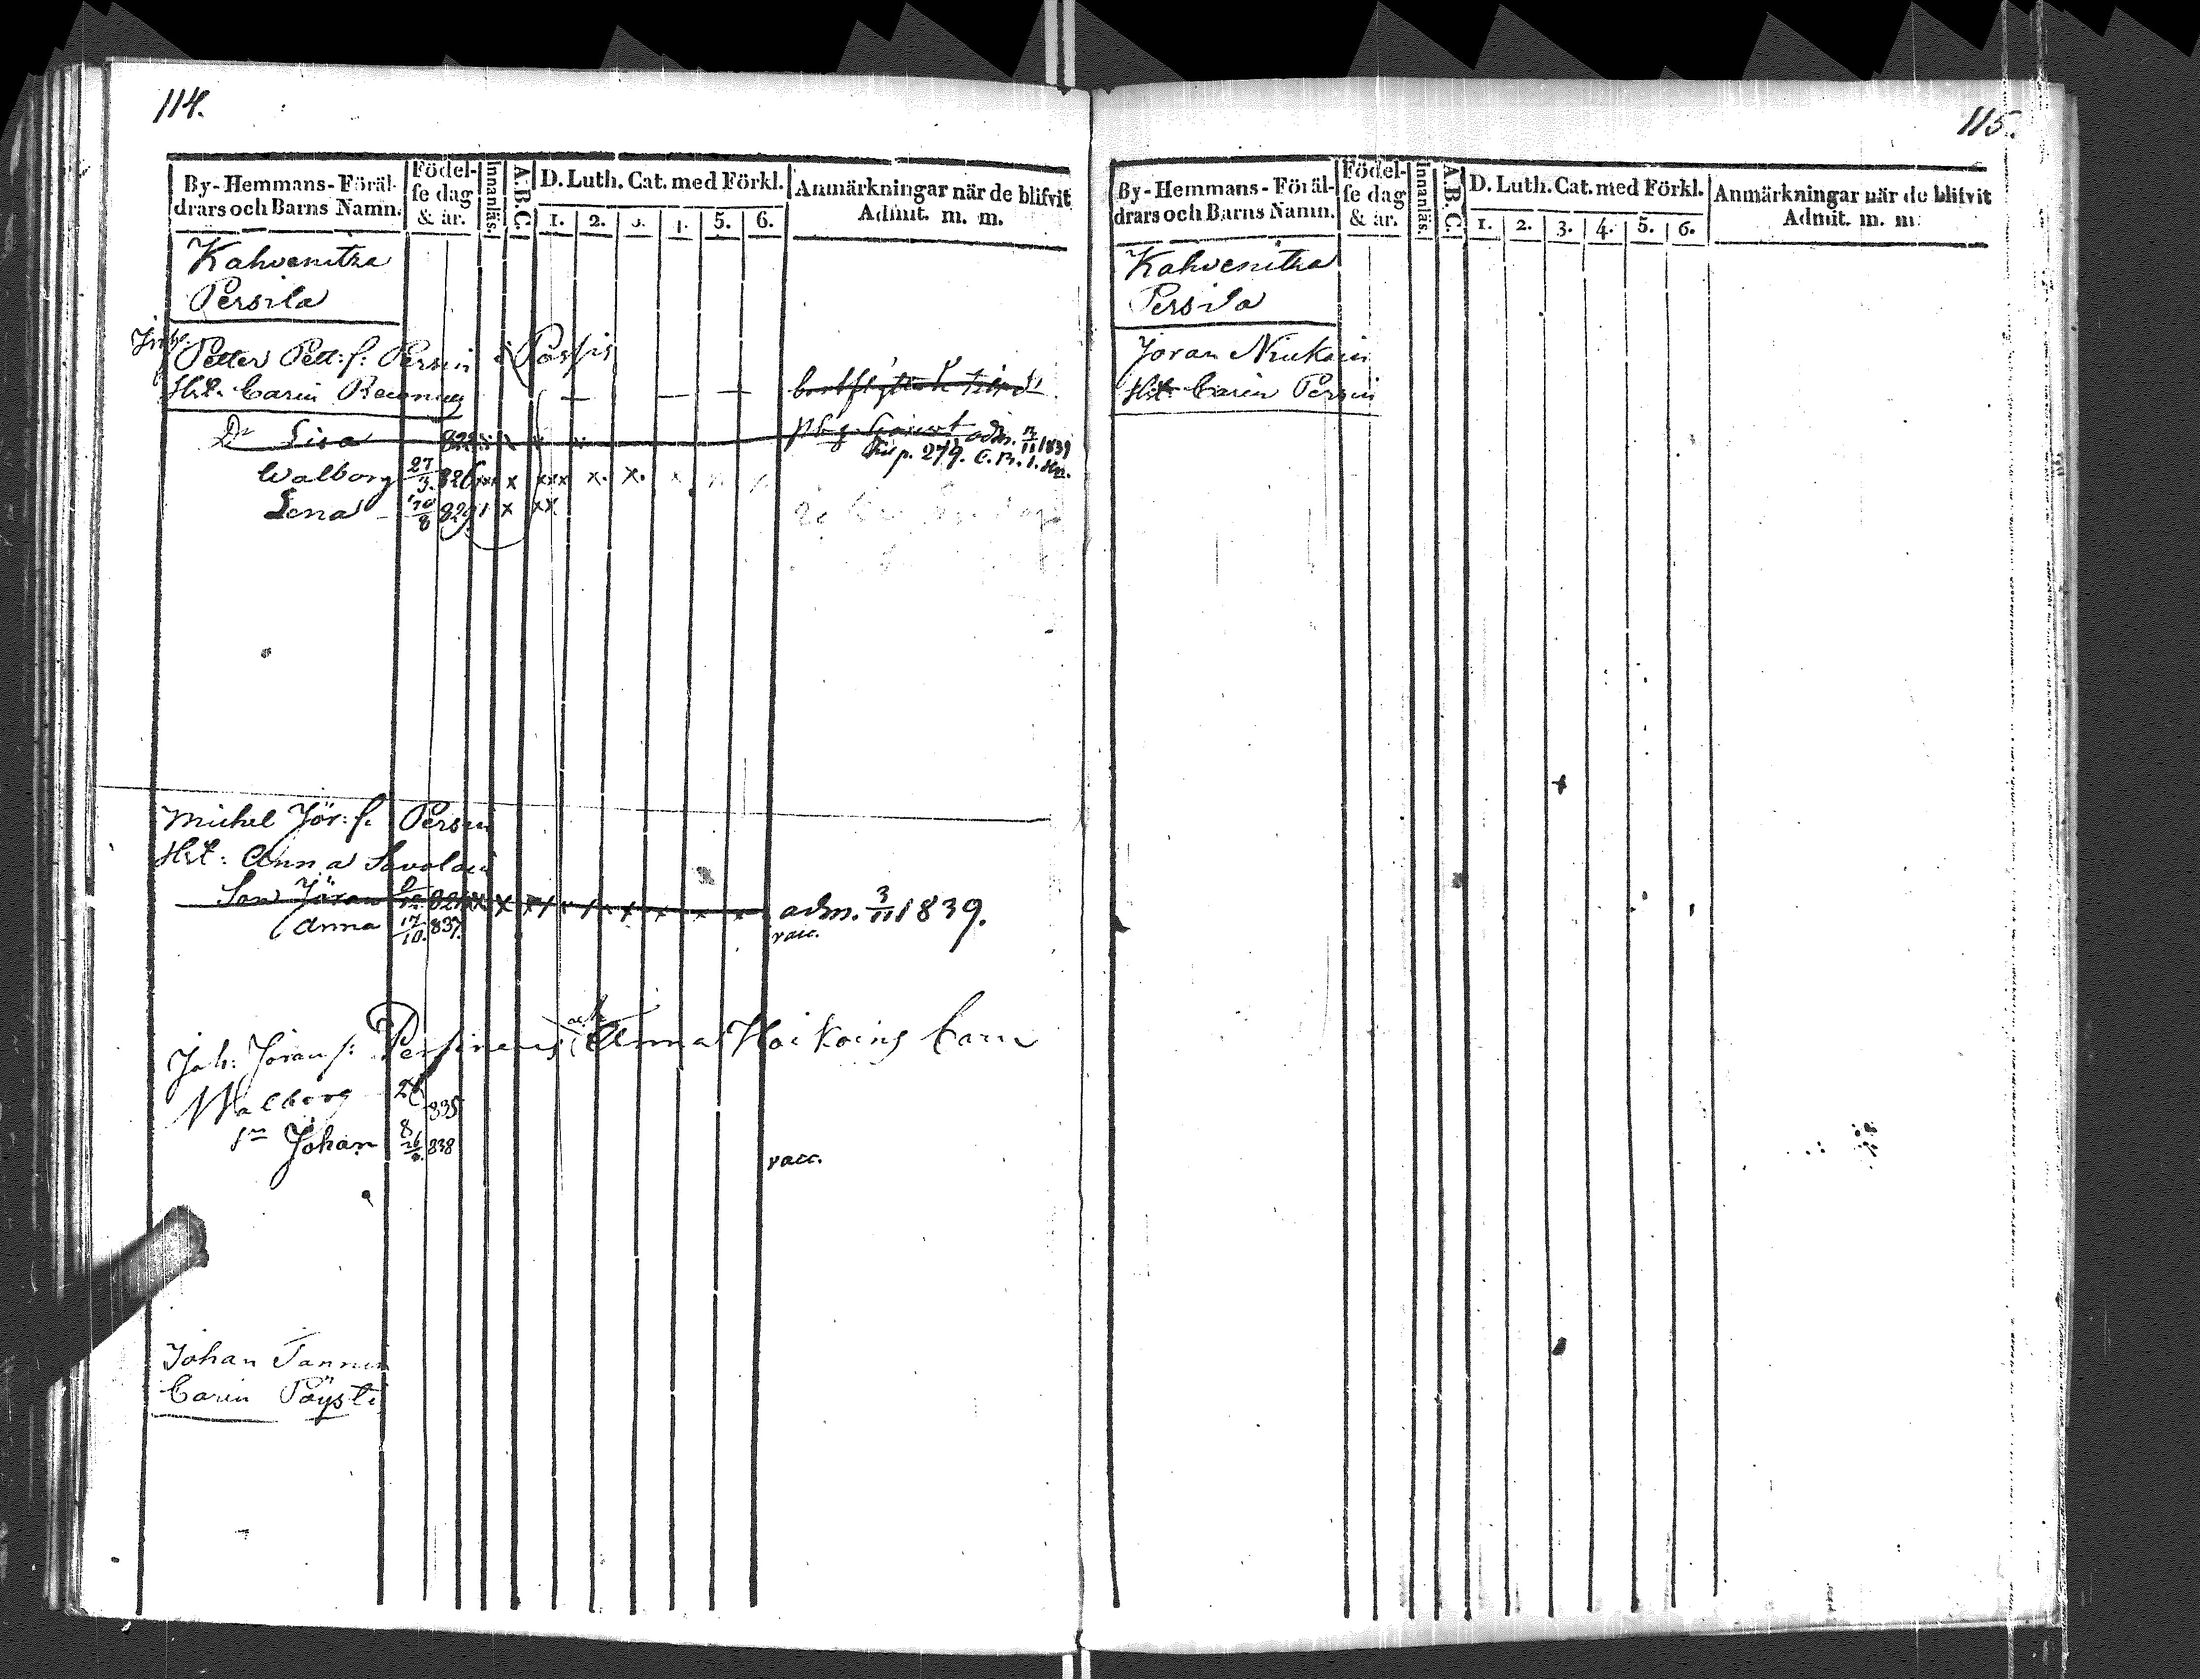 114.
By-Hemmans-Föräl-
drars och Barns Namn.
Födel-
se dag
& år.
Innanläs.
A.B.C.
D. Luth. Cat. med Förkl.
1. 2. 3. 4. 5. 6.
Anmärkningar när de blifvit
Admit. m. m.
Kahvenitsa
Persila
Petter Pett: s: Persin
Hst. Carin
Dr Lisa 822 x x x adm. 1839
p. 279. C. B. 1.
Walborg 27/3. 826 xxx x xxx x. x. x
Lena 10/8 829 1 x xx
Michel Jör: s. Persin
Hst: Anna Savolain
Son Jöran x x x x x x x adm. 3/11 1839.
Anna 17/10. 837. vacc.
Joh: Jöran s: Persinens och Anna Hoikoins barn
Walborg 835
sn Johan 26 838 vacc.
Johan Tannin
Carin Pöysti
115.
By-Hemmans-Föräl-
drars och Barns Namn.
Födel-
se dag
& år.
Innanläs.
A.B.C.
D. Luth. Cat. med Förkl.
1. 2. 3. 4. 5. 6.
Anmärkningar när de blifvit
Admit. m. m.
Kahvenitsa
Persila
Jöran Niukain
Hst Carin Persin